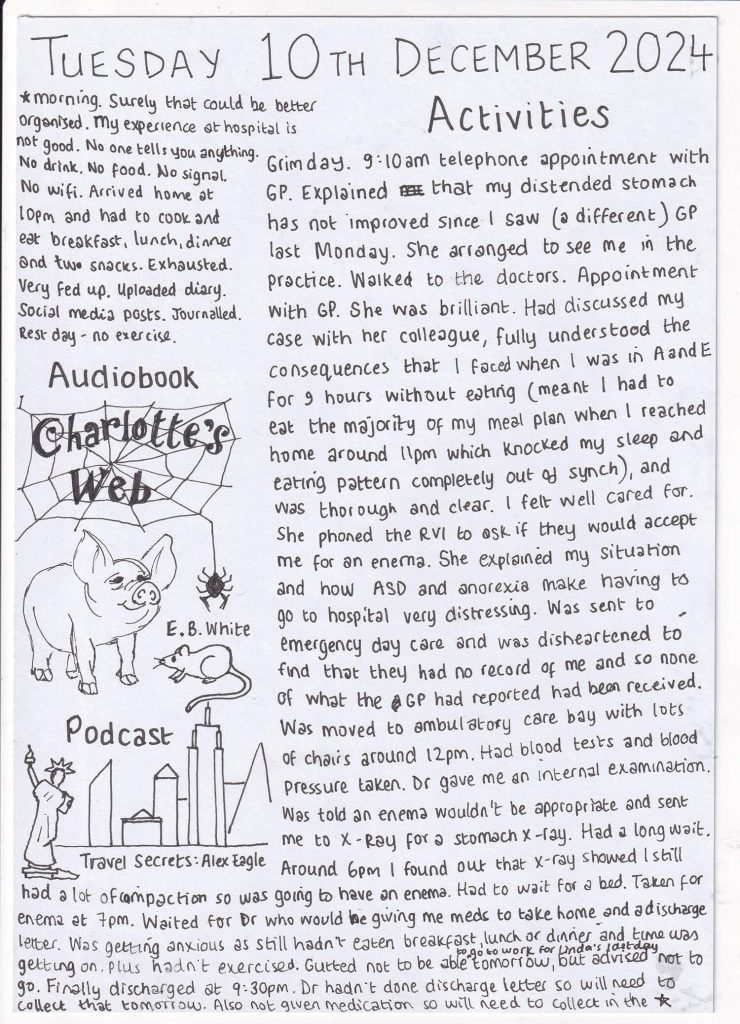 TUESDAY 10TH DECEMBER 2024
Activities
Grimday. 9:10am telephone appointment with
GP. Explained that my distended stomach
has not improved since I saw (a different) GP
last Monday. She arranged to see me in the
practice. Walked to the doctors. Appointment
with GP. She was brilliant. Had discussed my
case with her colleague, fully understood the
consequences that I faced when I was in A and E
for 9 hours without eating (meant I had to
eat the majority of my meal plan when I reached
home around 11pm which knocked my sleep and
eating pattern completely out of synch), and
was thorough and clear. I felt well cared for.
She phoned the RVI to ask if they would accept
me for an enema. She explained my situation
and how ASD and anorexia make having to
go to hospital very distressing. Was sent to
emergency day care and was disheartened to
find that they had no record of me and so none
of what the GP had reported had been received.
Was moved to ambulatory care bay with lots
of chairs around 12pm. Had blood tests and blood
pressure taken. Dr gave me an internal examination.
Was told an enema wouldn't be appropriate and sent
me to X-Ray for a stomach x-ray. Had a long wait.
Around 6pm I found out that x-ray showed I still
had a lot of compaction so was going to have an enema. Had to wait for a bed. Taken for
enema at 7pm. Waited for Dr who would be giving me meds to take home and a discharge
letter. Was getting anxious as still hadn't eaten breakfast, lunch or dinner and time was
getting on. Plus hadn't exercised. Gutted not to be able to go to work for Linda's last day tomorrow, but advised not to
go. Finally discharged at 9:30pm. Dr hadn't done discharge letter so will need to
collect that tomorrow. Also not given medication so will need to collect in the *
* morning. Surely that could be better
organised. My experience at hospital is
not good. No one tells you anything.
No drink. No food. No signal.
No wifi. Arrived home at
10pm and had to cook and
eat breakfast, lunch, dinner
and two snacks. Exhausted.
Very fed up. Uploaded diary.
Social media posts. Journalled.
Rest day - no exercise.
Audiobook
Charlotte's
Web
E.B. White
Podcast
Travel Secrets: Alex Eagle